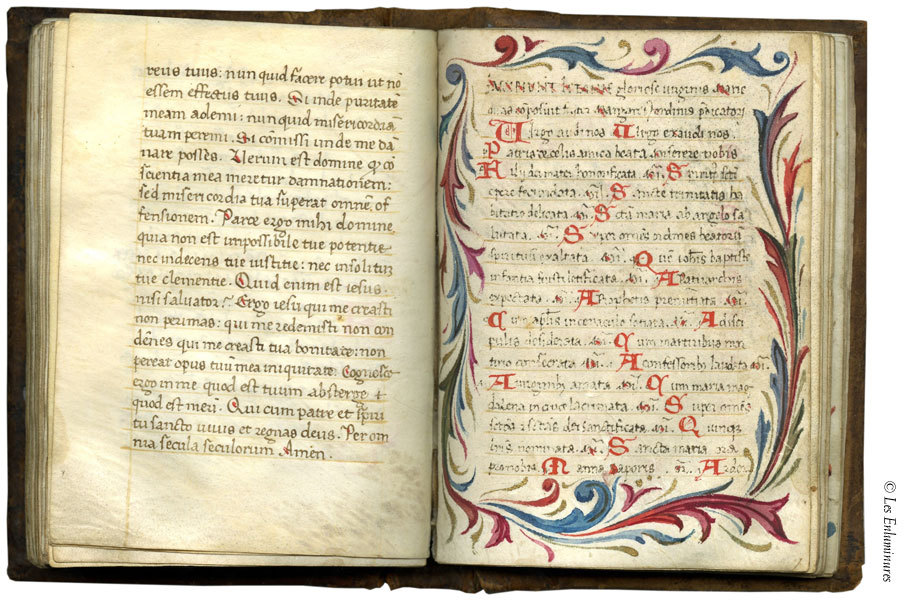 reus tuus: nun quid facere potui ut nō
essem effectus tuus. Si inde puritatē
meam ademi: nunquid misericordiā
tuam peremi. Si cōmissi unde me da
nare posses. Verum est domine q̢ cō
scientia mea meretur damnationem:
sed misericordia tua superat omnē of
fensionem. Parce ergo mihi domine
quia non est impossibile tue potentie
nec indecens tue iustitie: nec insolituȝ
tue clementie. Quid enim est iesus
nisi salvator: Ergo iesu qui me creasti
non perimas: qui me redemisti non con
dēnes qui me creasti tua bonitate: non
pereat opus tuū mea iniquitate: Cognosce
ergo in me quod est tuum absterge
quod est meū. Qui cum patre et spiri
tu sancto vivis et regnas deus. Per om
nia secula seculorum. Amen.
gloriose virginis marie
Virgo audi nos Virgo exaudi nos.
Patria celis amica beata miserere nobis
Filij dei mater honorificata
Sancte trinitatis ha
bitatio delicata Sctā maria ab angelo sa
lutata Super omēs ordines beatorū
spirituum exaltata Que iohīs baptiste
infantia letificata A Patriarchis
expectata A Prophetis premūtata
Cum aplīs in cenaculo A disci
pulis desiderata Cum martiribus mar
tirio consecrata A confessoribus laudata
A virginibus amata Cum maria mag
dalena in cruce lacrimata Super omēs
sanctificata
nominata Sancta maria ora
pro nobis Manna saporis Ardor
© Les Enluminures